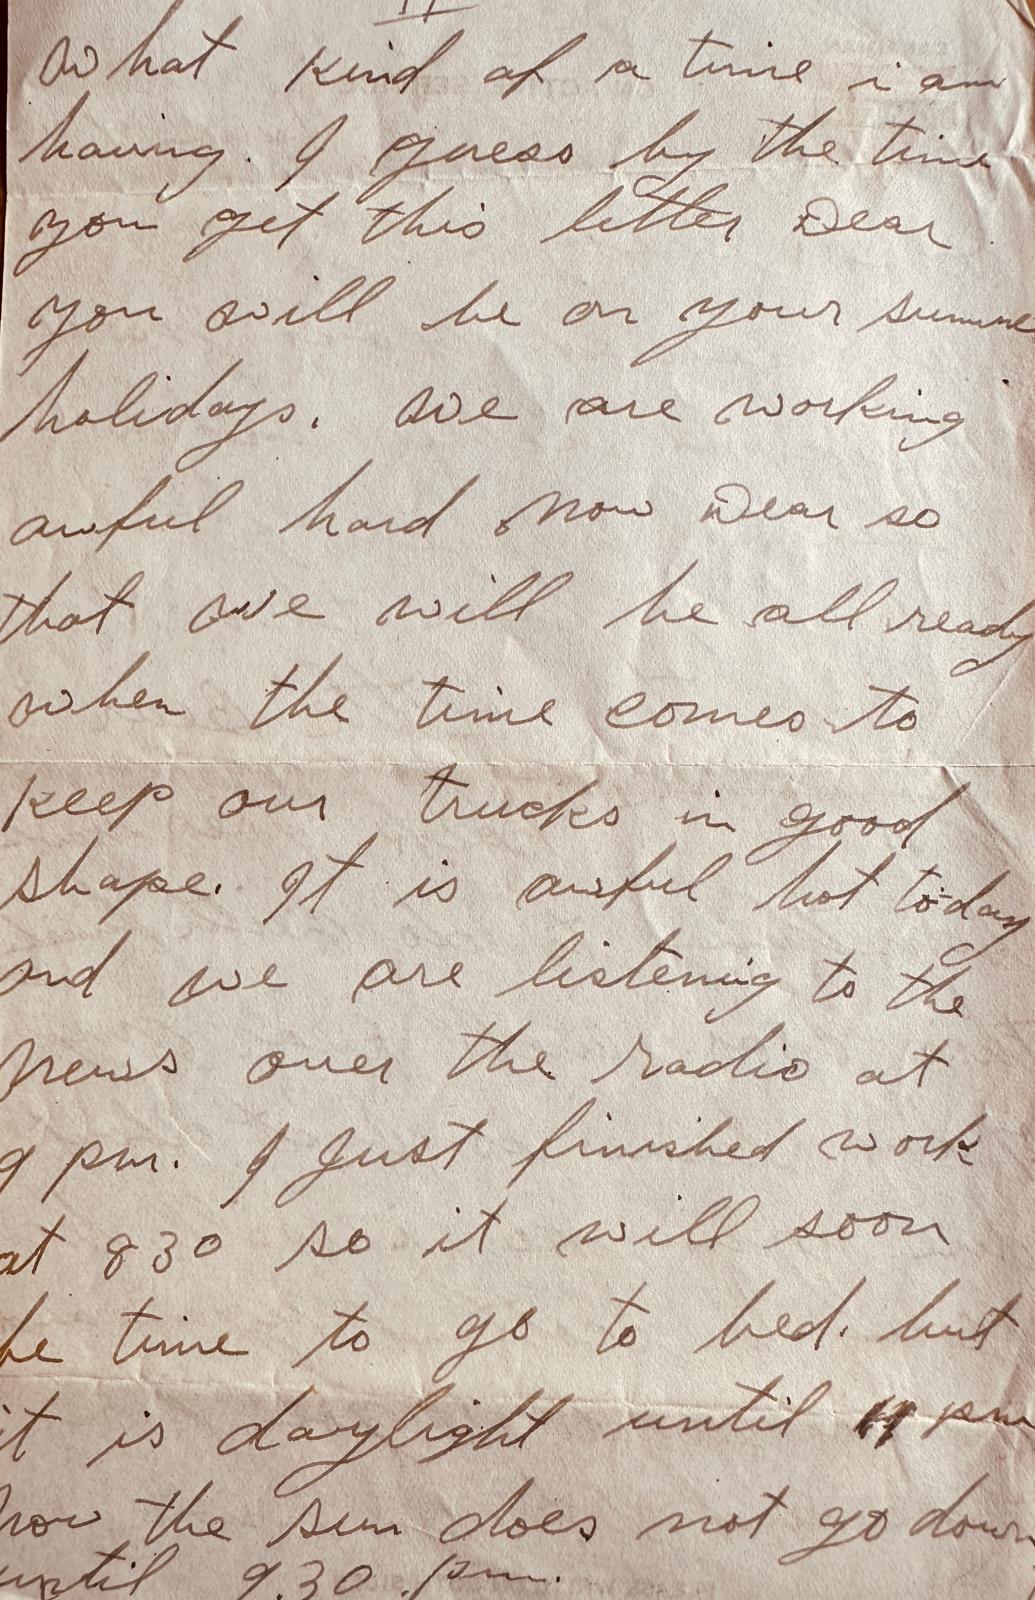 II
What kind of a time i am
having. I guess by the time
you get this letter Dear
you will be on your summe
holidays. We are working
awful hard now Dear so
that we will be all ready
when the time comes to
keep our trucks in good
shape. It is awful hot to-day
and we are listening to the
news over the radio at
9 pm. I just finished work
at 830 so it will soon
be time to go to bed. but
it is daylight until 11 pm
now the sun does not go down
until 9.30 pm.